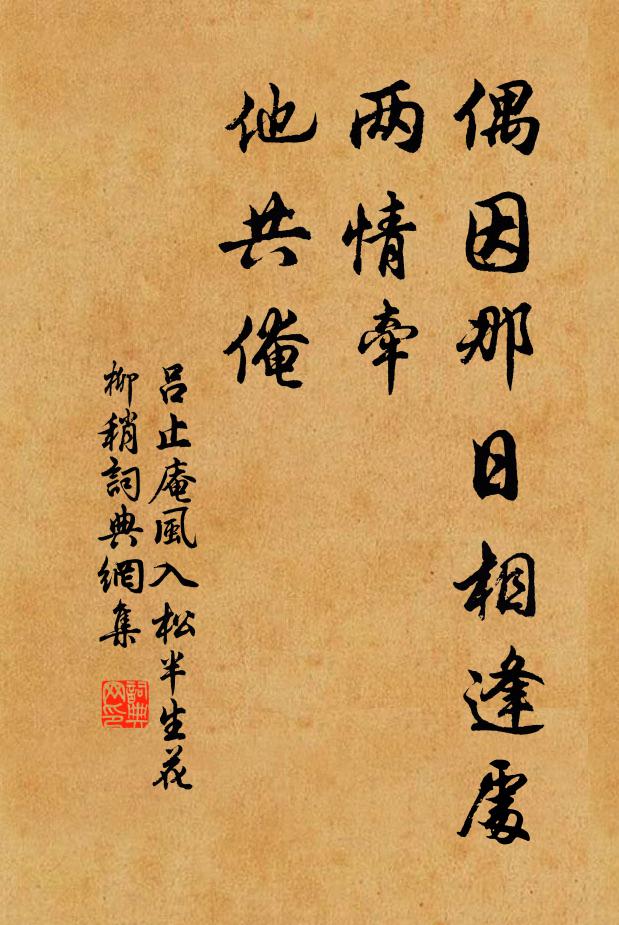 偶因那日相逢處
两情牽
他共俺
吕止庵風入松半生花
柳稍詞典網集
詞典网印